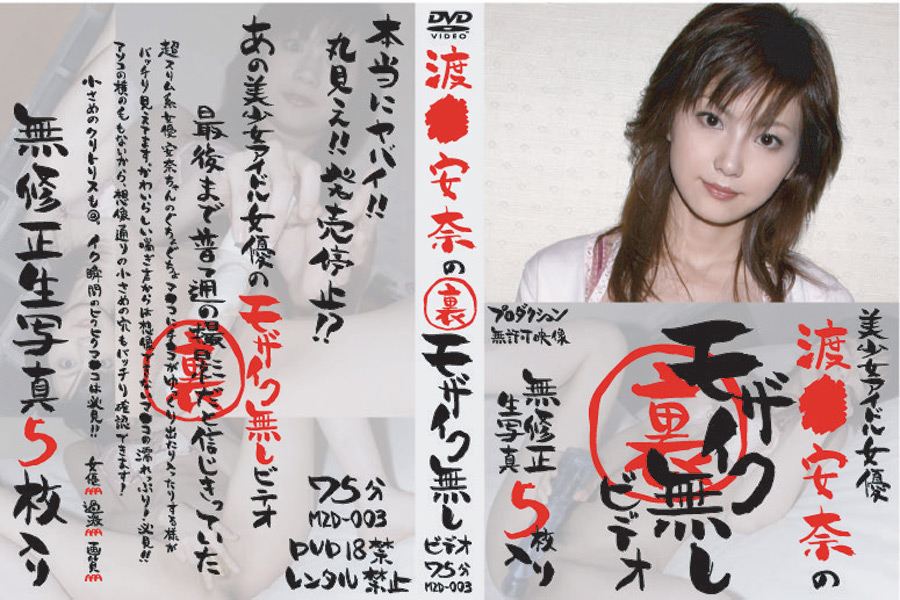 本当にヤバイ!!
丸見え!!発売停止!?
あの美少女アイドル女優のモザイク無しビデオ
最後まで普通の撮影だと信じきっていた
裏
超スリム系女優 安奈ちゃんのぐちょぐちょマ●コにチ●コがゆっくり出たり入ったりする様が
バッチリ見えてます。かわいらしい喘ぎ声からは想像できないマ●コの濡れっぷりも必見!!
アソコの横の毛もないから、想像通りの小さめの穴もバッチリ確認できます!
小さめのクリトリスも◎。イク瞬間のヒクヒクマ●コは必見!!
女優AAA 過激AAA 画質AAA
無修正生写真5枚入り
75分
MZD-003
DVD 18禁
レンタル禁止
DVD
VIDEO
渡●安奈の裏モザイク無しビデオ
75分
MZD-003
プロダクション
無許可映像
美少女アイドル女優
渡●安奈の
裏
モザイク無し
ビデオ
無修正
生写真
5枚入り